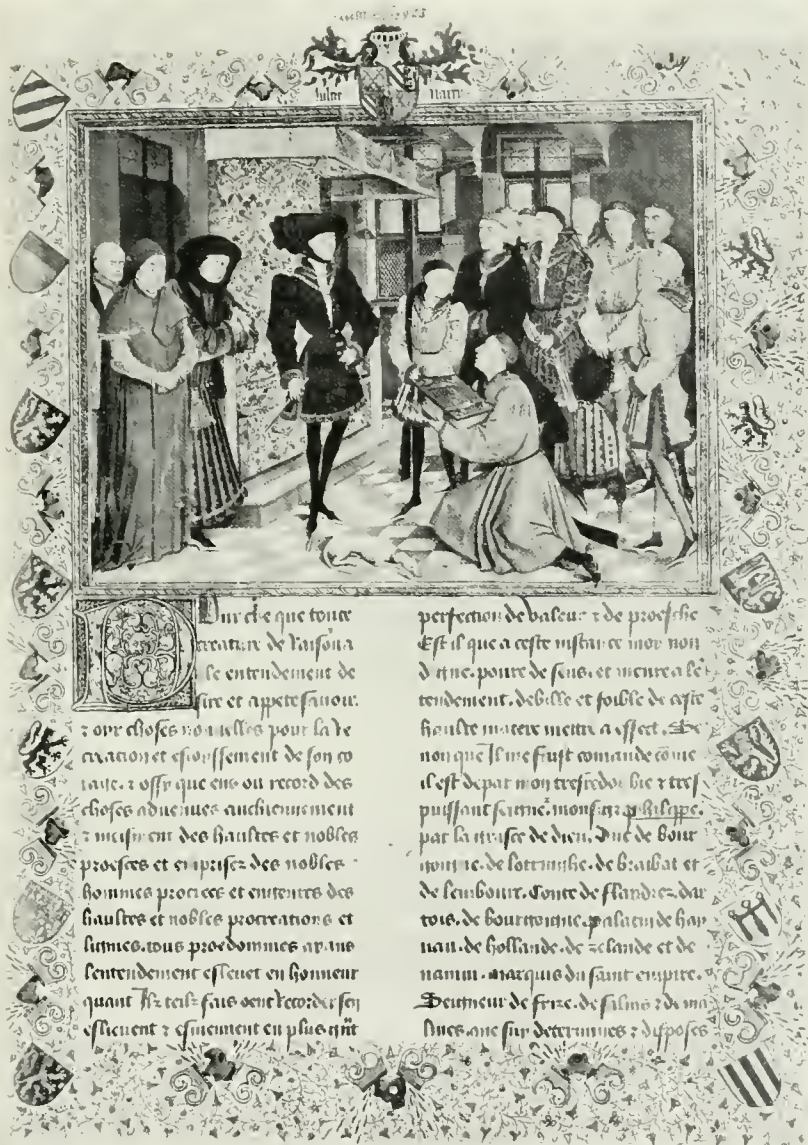 aultre naray
Pur ce que toute
creature de raison a
le entendement de
sire et appete sauoir
⁊ oyr choses nouuelles pour la re
creacion et esioyssement de son co
raige. ⁊ ossy que en ou record des
choses aduenues anchiennement
⁊ meisment des haultes et nobles
proesces et emprises des nobles
hommes procrees et entre des
haultes et nobles procreations et
lignies. tous proedommes ayans
lentendement esleuet en honneur
quant Ilz telz fais oent recorder sen
esliement ⁊ esmeuuent en plus gnt
perfection de valeur ⁊ de proesche
Est il que a ceste instance moy non
digne. poure de sens. et meure a le
tendement. debille et foible de ceste
haulte matere mettre a effect. Se
non que Il me fuist comande come
il est de par mon tresredoubte ⁊ tres
puissant seigneur monsigr philippe.
par la grasce de dieu. Duc de bour
goinne. de lottringhe. de braibat et
de lembourc. Conte de flandrez. dar
tois. de bourgoinne. palatin de hay
nau. de hollande. de zelande et de
namur. marquis du saint empire.
Seigneur de frize. de salins ⁊ de ma
lines. ane suy determines ⁊ disposes